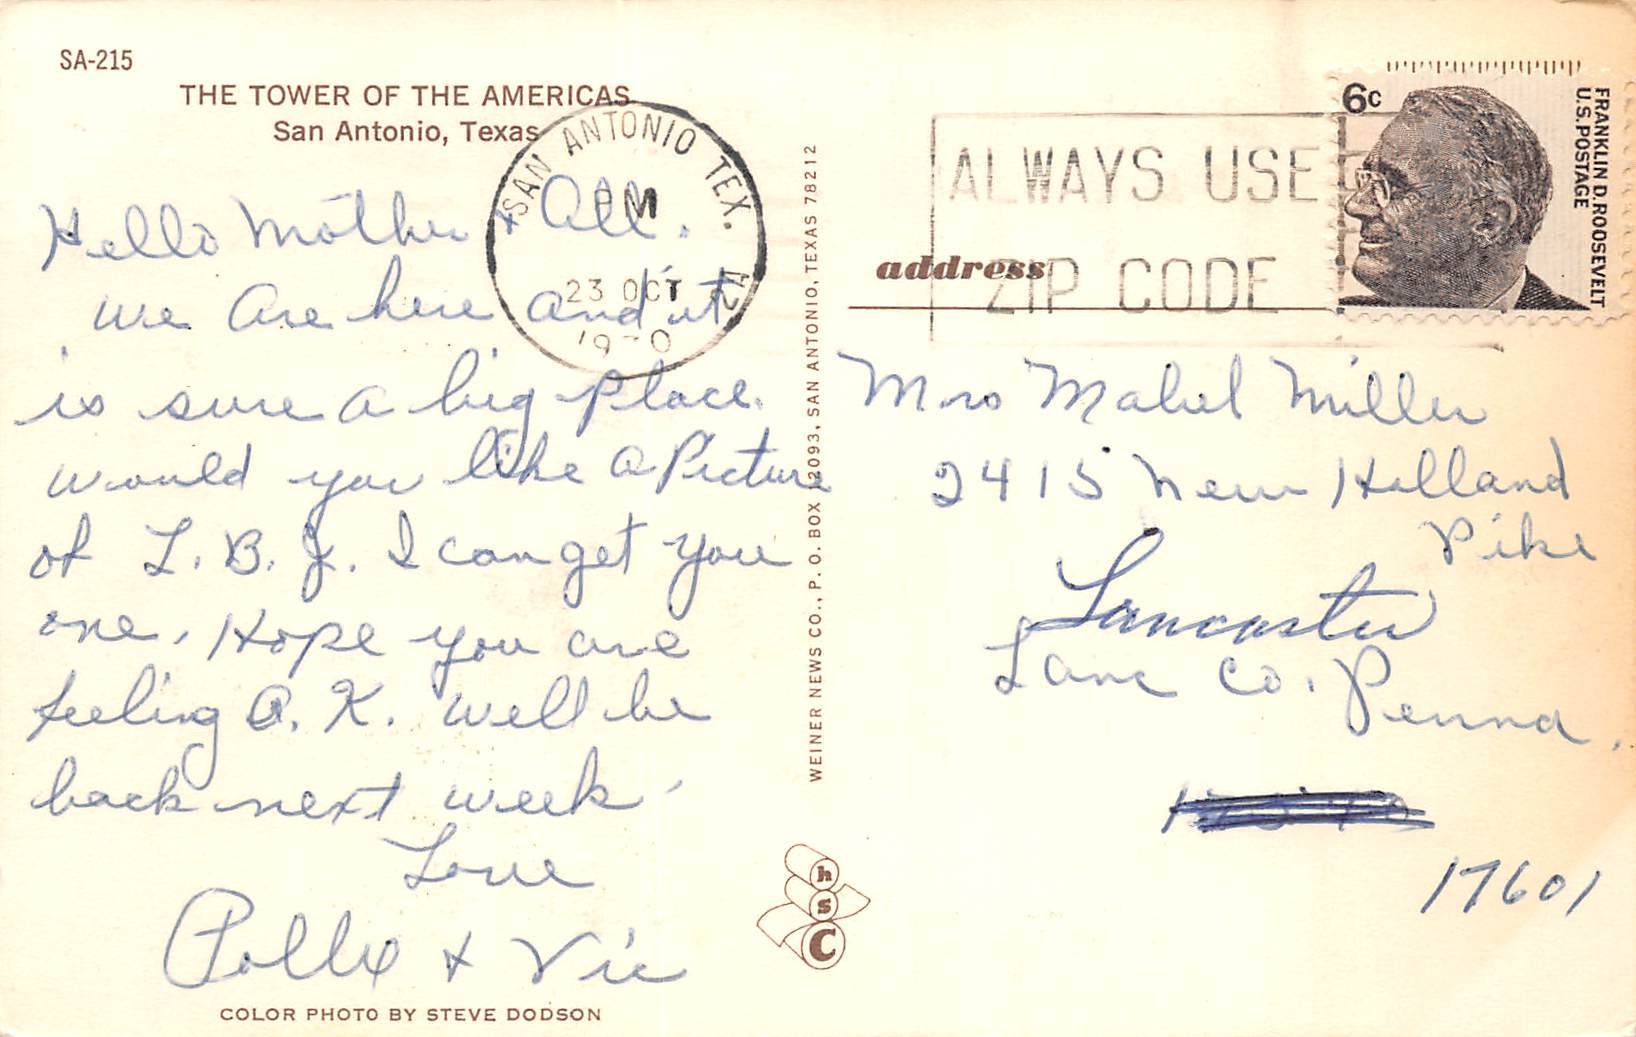 SA-215
THE TOWER OF THE AMERICAS
San Antonio, Texas
SAN ANTONIO TEX.
PM
23 OCT
1970
ALWAYS USE
ZIP CODE
6c
FRANKLIN D. ROOSEVELT
U.S. POSTAGE
Hello Mother + All.
we are here and it
is sure a big place.
would you like a Picture
of L. B. J. I can get you
one. Hope you are
feeling O. K. will be
back next week.
Love
Polly + Vic
COLOR PHOTO BY STEVE DODSON
WEINER NEWS CO., P. O. BOX 12093, SAN ANTONIO, TEXAS 78212
hsc
address
Mrs Mabel Miller
2415 New Holland
Pike
Lancaster
Lanc Co. Penna.
17601